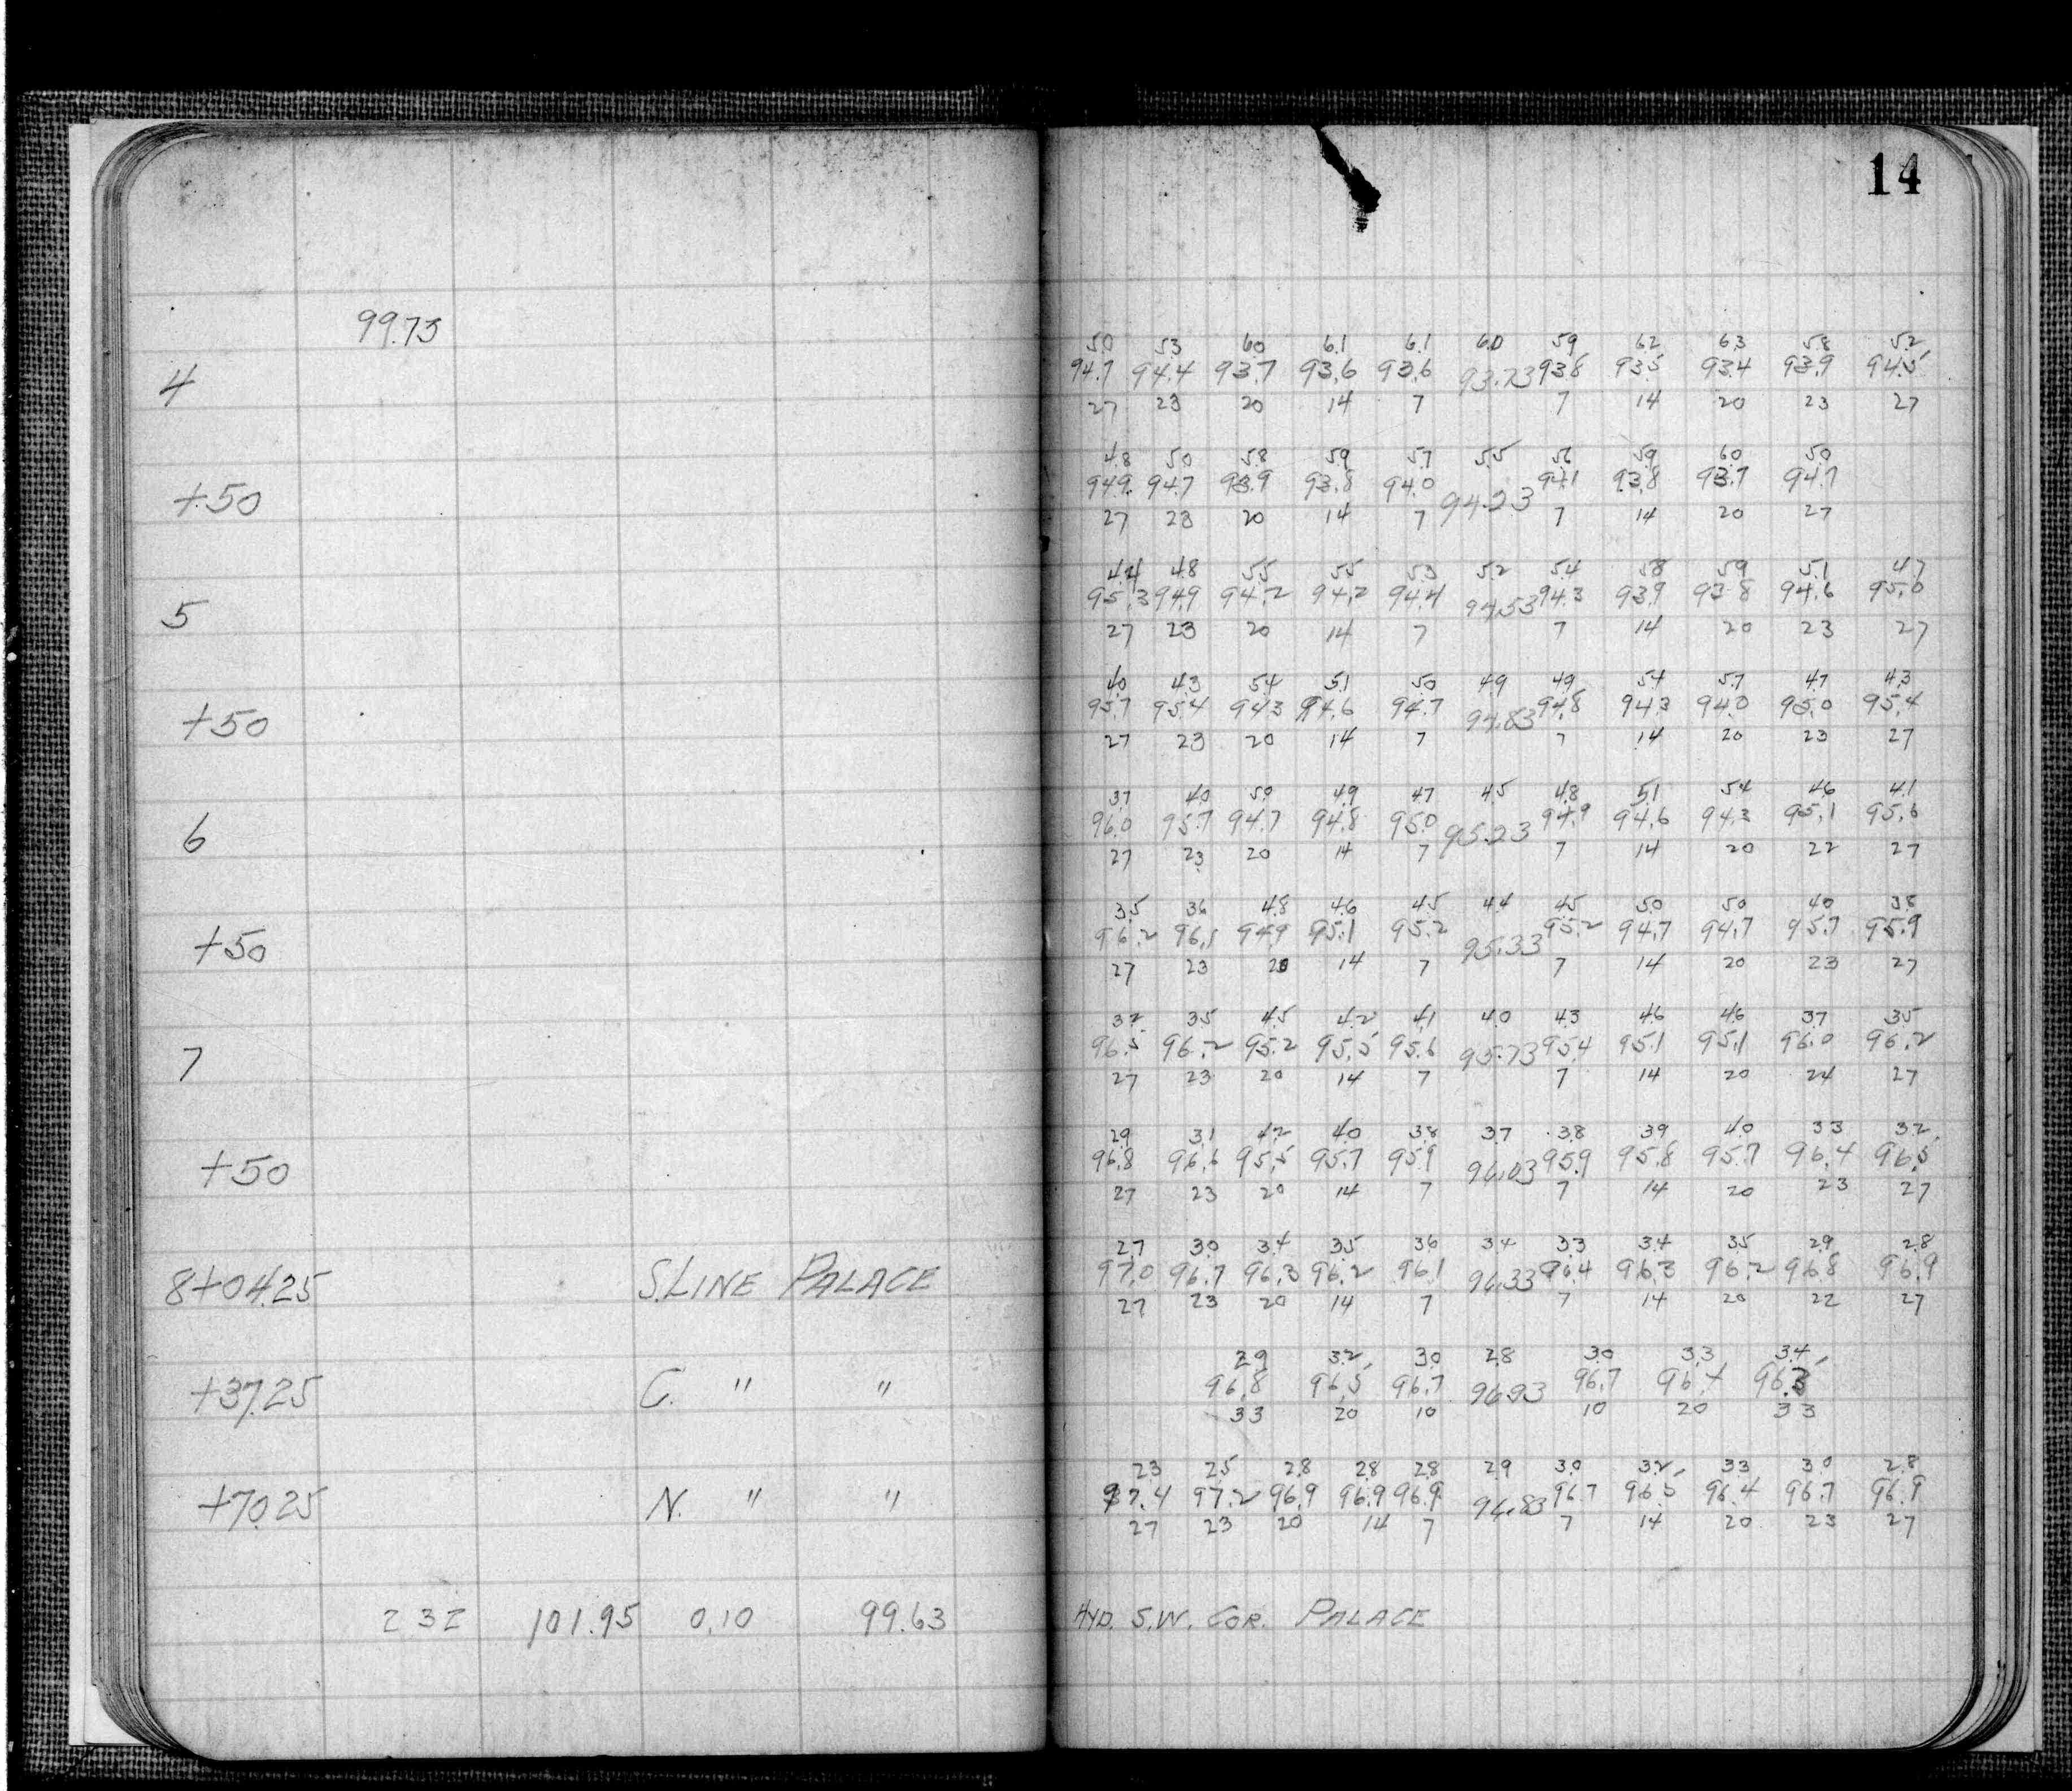 14
99.73
5.0 5.3 6.0 6.1 6.1 6.0 5.9 6.2 6.3 5.8 5.2
4 94.7 94.4 93.7 93.6 93.6 93.73 93.8 93.5 93.4 93.9 94.5
27 23 20 14 7 7 14 20 23 27
4.8 5.0 5.8 5.9 5.7 5.5 5.6 5.9 6.0 5.0
+50 94.9 94.7 93.9 93.8 94.0 94.23 94.1 93.8 93.7 94.7
27 23 20 14 7 7 14 20 27
4.4 4.8 5.5 5.5 5.3 5.2 5.4 5.8 5.9 5.1 4.7
5 95.3 94.9 94.2 94.2 94.4 94.53 94.3 93.9 93.8 94.6 95.0
27 23 20 14 7 7 14 20 23 27
4.0 4.3 5.4 5.1 5.0 4.9 4.9 5.4 5.7 4.7 4.3
+50 95.7 95.4 94.3 94.6 94.7 94.83 94.8 94.3 94.0 95.0 95.4
27 23 20 14 7 7 14 20 23 27
3.7 4.0 5.0 4.9 4.7 4.5 4.8 5.1 5.4 4.6 4.1
6 96.0 95.7 94.7 94.8 95.0 95.23 94.9 94.6 94.3 95.1 95.6
27 23 20 14 7 7 14 20 22 27
3.5 3.6 4.8 4.6 4.5 4.4 4.5 5.0 5.0 4.0 3.8
+50 96.2 96.1 94.9 95.1 95.2 95.33 95.2 94.7 94.7 95.7 95.9
27 23 20 14 7 7 14 20 23 27
3.2 3.5 4.5 4.2 4.1 4.0 4.3 4.6 4.6 3.7 3.5
7 96.5 96.2 95.2 95.5 95.6 95.73 95.4 95.1 95.1 96.0 96.2
27 23 20 14 7 7 14 20 24 27
2.9 3.1 4.2 4.0 3.8 3.7 3.8 3.9 4.0 3.3 3.2
+50 96.8 96.6 95.5 95.7 95.9 96.03 95.9 95.8 95.7 96.4 96.5
27 23 20 14 7 7 14 20 23 27
2.7 3.0 3.4 3.5 3.6 3.4 3.3 3.4 3.5 2.9 2.8
8+04.25 S. LINE PALACE 97.0 96.7 96.3 96.2 96.1 96.33 96.4 96.3 96.2 96.8 96.9
27 23 20 14 7 7 14 20 22 27
2.9 3.2 3.0 2.8 3.0 3.3 3.4
+37.25 C. " " 96.8 96.5 96.7 96.93 96.7 96.4 96.3
33 20 10 10 20 33
2.3 2.5 2.8 2.8 2.8 2.9 3.0 3.2 3.3 3.0 2.8
+70.25 N. " " 97.4 97.2 96.9 96.9 96.9 96.83 96.7 96.5 96.4 96.7 96.9
27 23 20 14 7 7 14 20 23 27
2.32 101.95 0.10 99.63 HYD. S.W. COR. PALACE